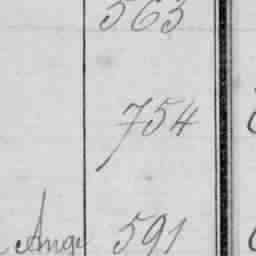 563
754
Ange 591